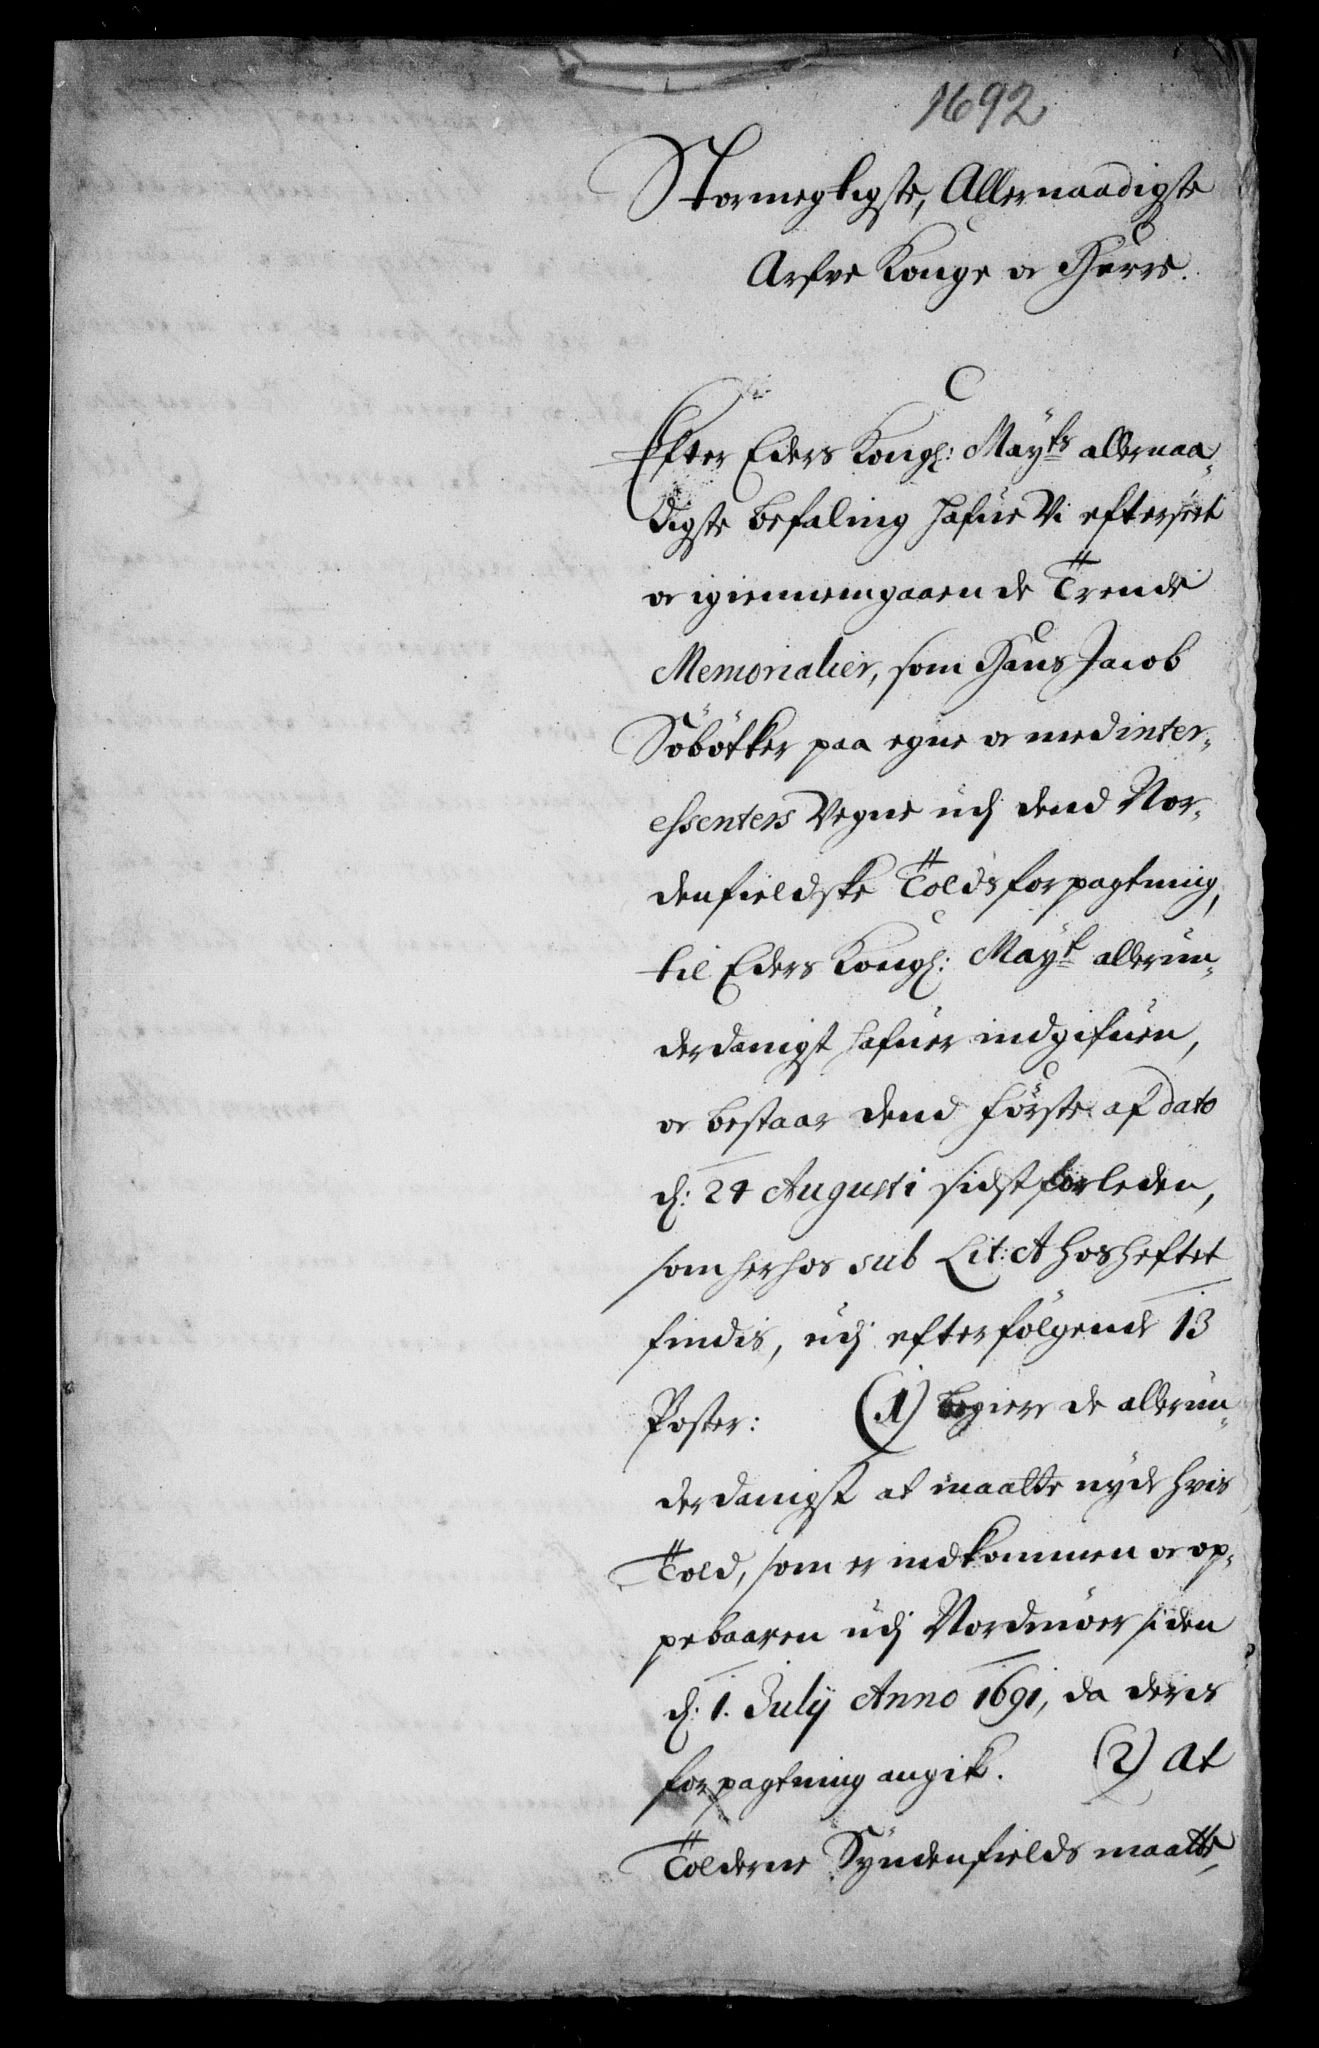 1692
Stormegtigste, Allernaadigste
Arfve Konge oc Herre.
Efter Eders Kongl: Mayts allernaa„
digste befaling hafue Vi efterseet
oc igiennemgaaen de Trende
Memorialier, som Hans Jacob
Söbötker paa egne oc medinter„
essenters Vegne udj dend Nor„
denfieldske Tolds forpagtning,
til Eders Kongl: Mayt allerun„
derdanigst hafuer indgifuen,
oc bestaar dend förste af dato
d: 24 Augusti sidst forleden,
som herhos sub Lit: A hosheftet
findis, udj efterfölgende 13
Poster: (1) begiere de allerun„
derdanigst at maatte nyde hvis
Told, som er indkommen oc op„
pebaaren udj Nordmöer siden
d: 1. July Anno 1691, da deris
forpagtning angik. (2) At
Tolderne Syndenfields maatte